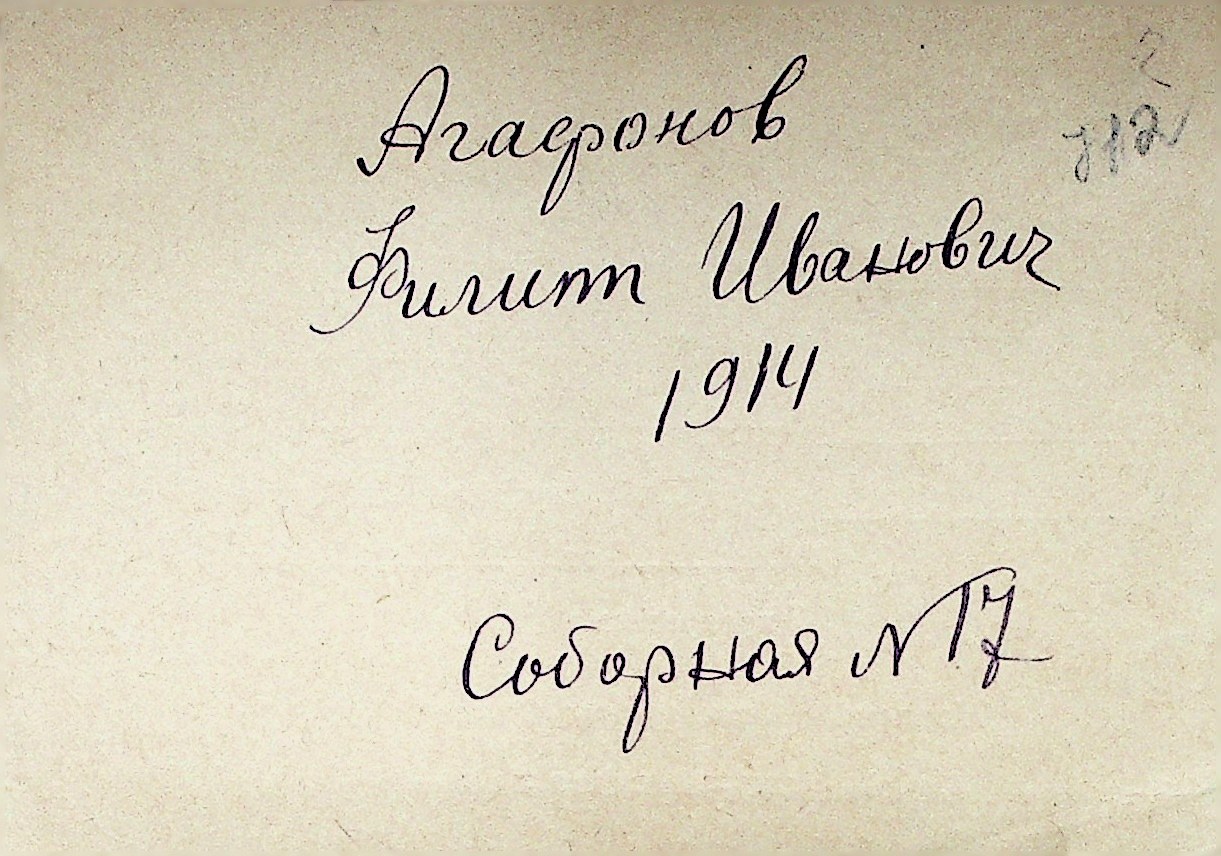 Агафонов
Филипп Иванович
1914
Соборная №17